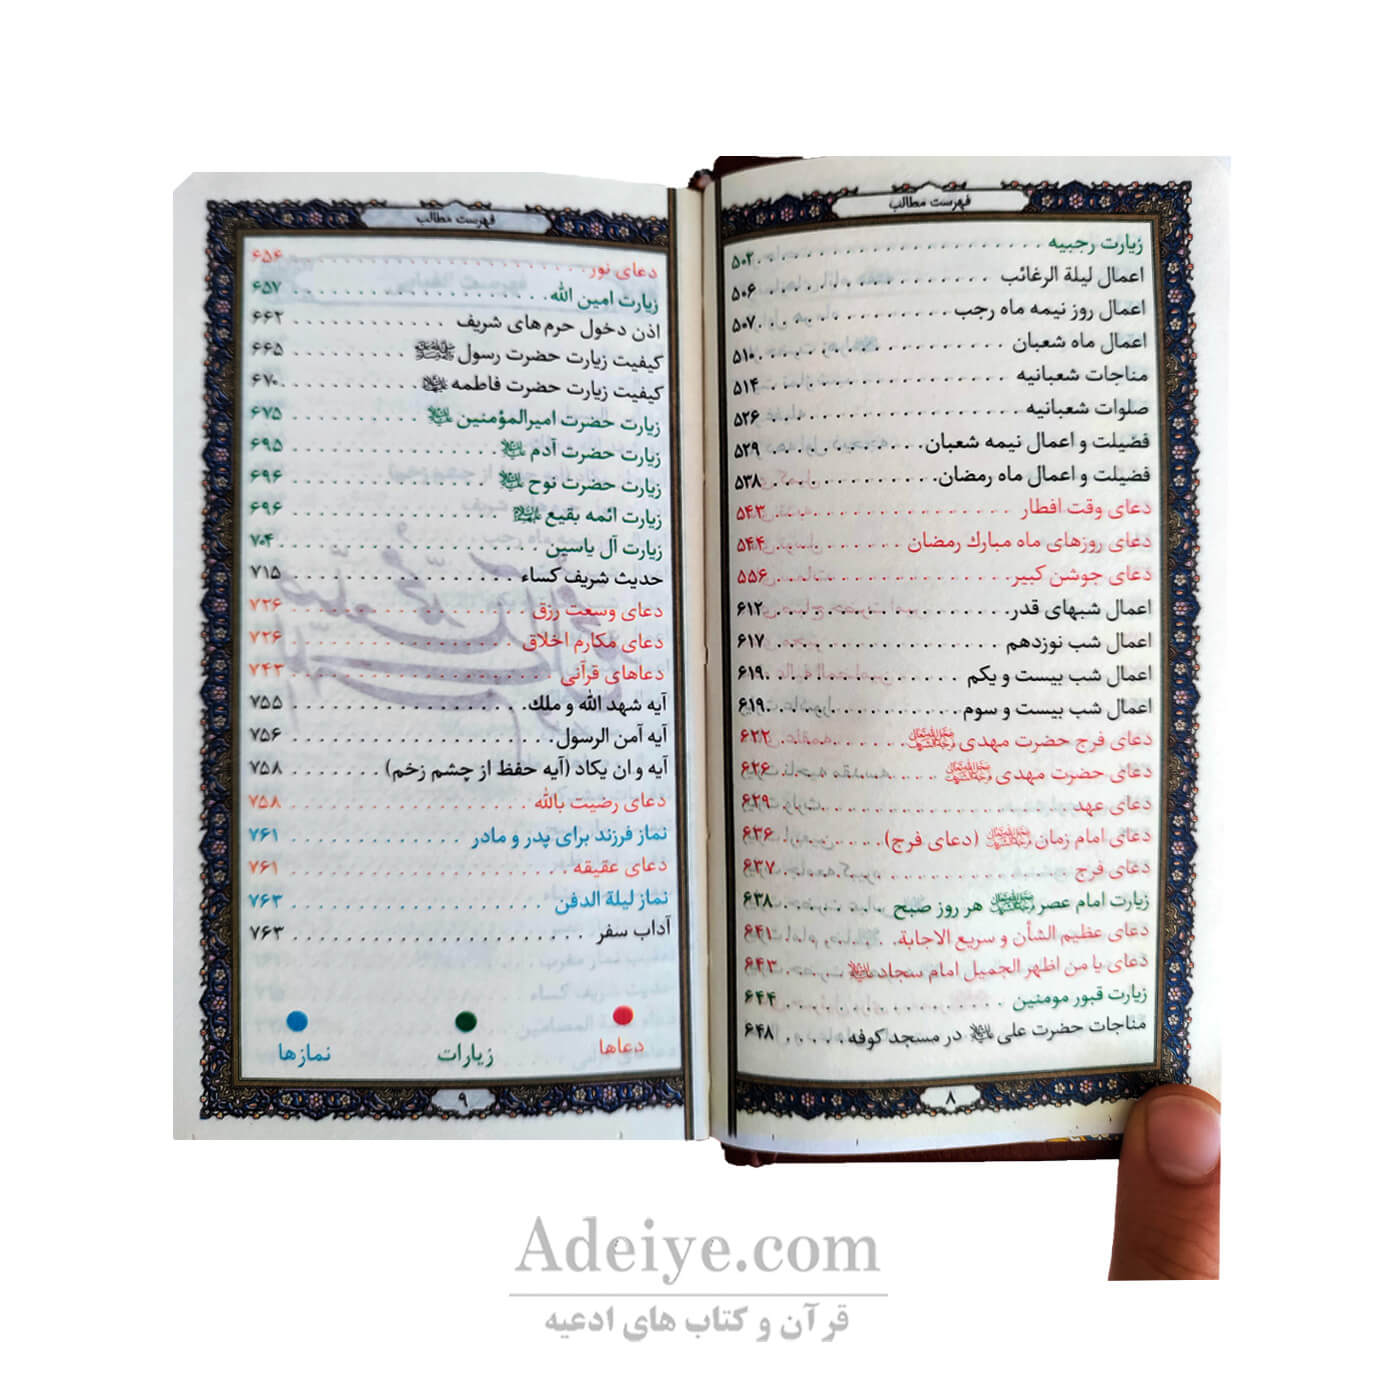 فهرست مطالب
زیارت رجبیه ۵۰۲
اعمال لیلة الرغائب ۵۰۶
اعمال روز نیمه ماه رجب ۵۰۷
اعمال ماه شعبان ۵۱۰
مناجات شعبانیه ۵۱۴
صلوات شعبانیه ۵۲۶
فضیلت و اعمال نیمه شعبان ۵۲۹
فضیلت و اعمال ماه رمضان ۵۳۸
دعای وقت افطار ۵۴۳
دعای روزهای ماه مبارك رمضان ۵۴۴
دعای جوشن کبیر ۵۵۶
اعمال شبهای قدر ۶۱۲
اعمال شب نوزدهم ۶۱۷
اعمال شب بیست و یکم ۶۱۹
اعمال شب بیست و سوم ۶۱۹
دعای فرج حضرت مهدی ۶۲۲
دعای حضرت مهدی ۶۲۶
دعای عهد ۶۲۹
دعای امام زمان (دعای فرج) ۶۳۶
دعای فرج ۶۳۷
زیارت امام عصر هر روز صبح ۶۳۸
دعای عظیم الشأن و سریع الاجابة ۶۴۱
دعای یا من اظهر الجمیل امام سجاد ۶۴۳
زیارت قبور مومنین ۶۴۴
مناجات حضرت علی در مسجد کوفه ۶۴۸
۸
فهرست مطالب
دعای نور ۶۵۶
زیارت امین الله ۶۵۷
اذن دخول حرم های شریف ۶۶۲
کیفیت زیارت حضرت رسول ۶۶۵
کیفیت زیارت حضرت فاطمه ۶۷۰
زیارت حضرت امیرالمؤمنین ۶۷۵
زیارت حضرت آدم ۶۹۵
زیارت حضرت نوح ۶۹۶
زیارت ائمه بقیع ۶۹۶
زیارت آل یاسین ۷۰۴
حدیث شریف کساء ۷۱۵
دعای وسعت رزق ۷۲۶
دعای مکارم اخلاق ۷۲۶
دعاهای قرآنی ۷۴۳
آیه شهد الله و ملك ۷۵۵
آیه آمن الرسول ۷۵۶
آیه و ان یکاد (آیه حفظ از چشم زخم) ۷۵۸
دعای رضیت بالله ۷۵۸
نماز فرزند برای پدر و مادر ۷۶۱
دعای عقیقه ۷۶۱
نماز لیلة الدفن ۷۶۳
آداب سفر ۷۶۳
دعاها زیارات نمازها
۹
Adeiye.com
قرآن و کتاب های ادعیه